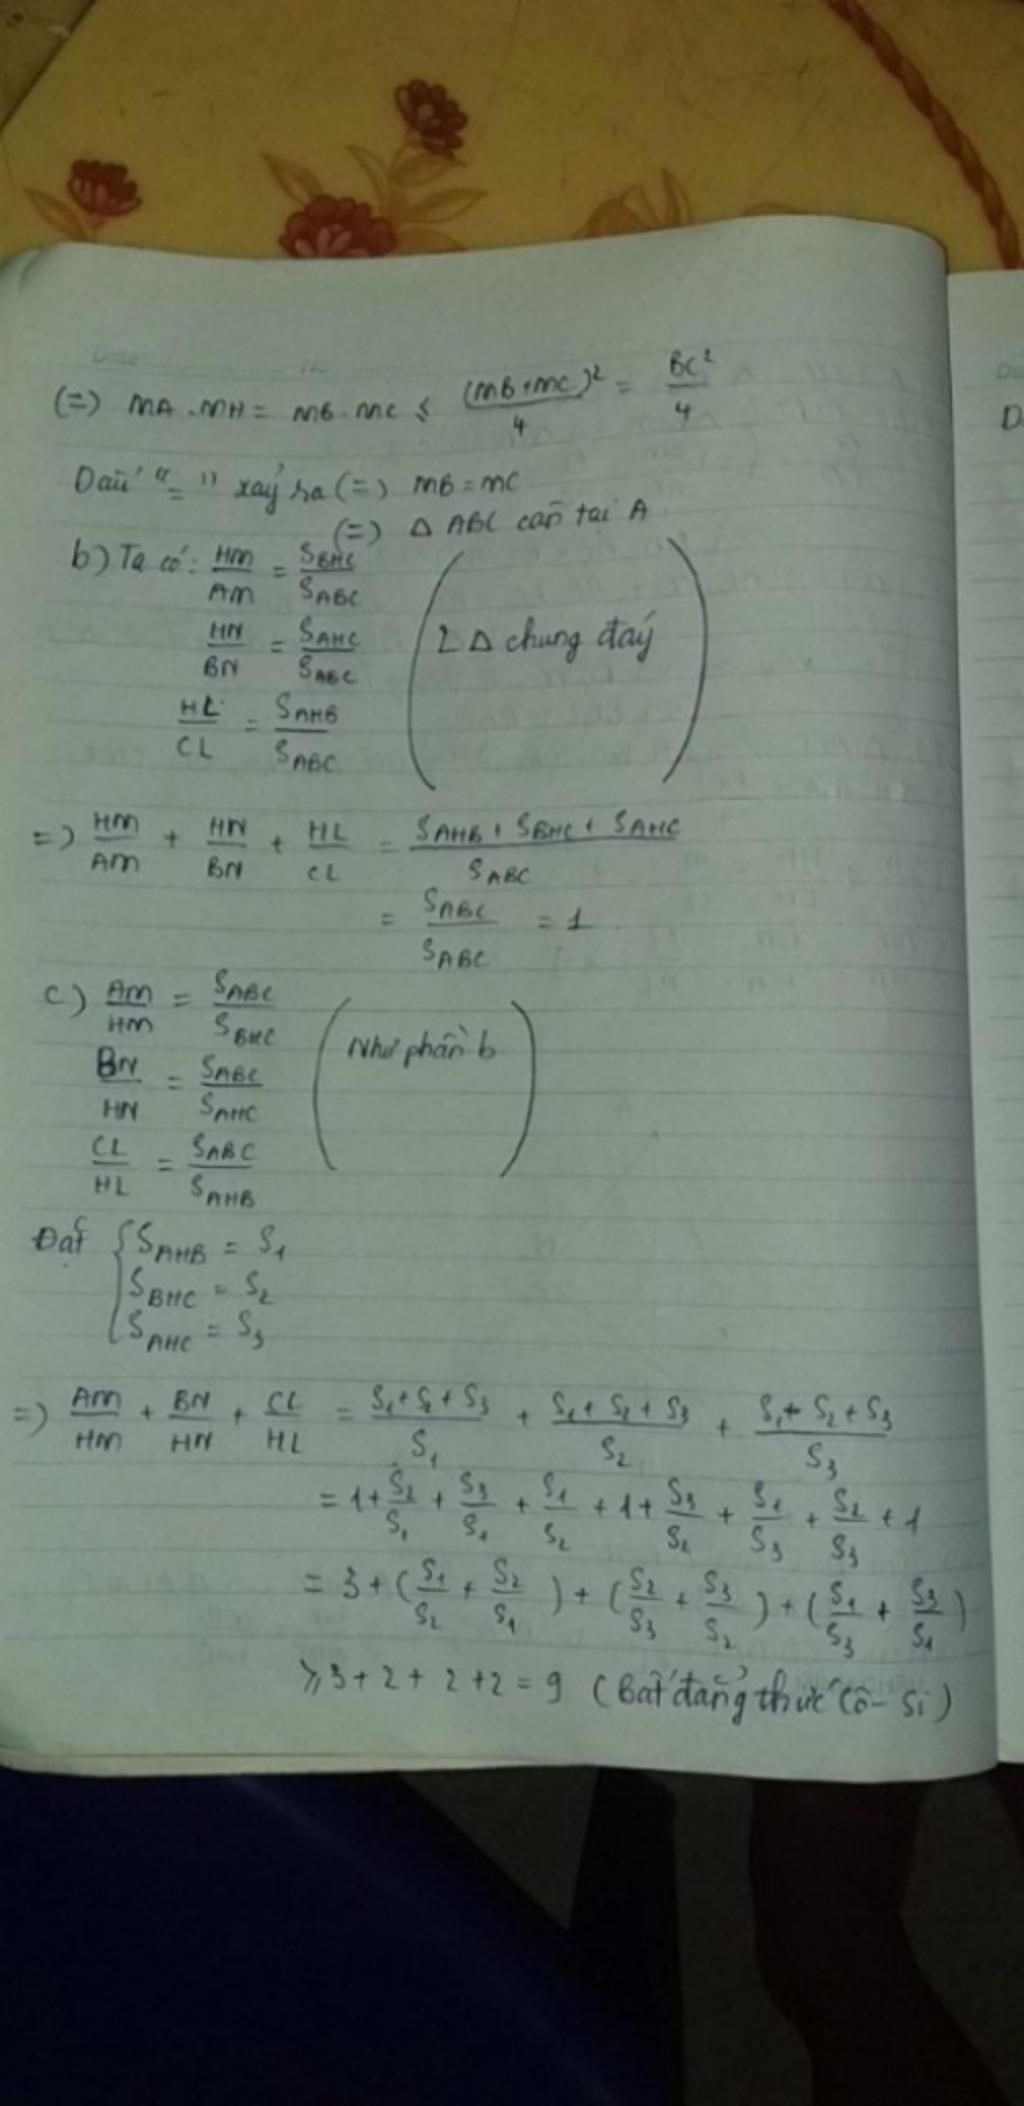 (=) MA . MH = MB . MC ≤ (MB + MC)² / 4 = BC² / 4
Dấu "=" xảy ra (=) MB = MC
(=) Δ ABC cân tại A
b) Ta có: HM/AM = S_BHC/S_ABC
HN/BN = S_AHC/S_ABC
(2 Δ chung đáy)
HL/CL = S_AHB/S_ABC
=) HM/AM + HN/BN + HL/CL = (S_AHB + S_BHC + S_AHC)/S_ABC
= S_ABC/S_ABC = 1
c) AM/HM = S_ABC/S_BHC
(Như phần b)
BN/HN = S_ABC/S_AHC
CL/HL = S_ABC/S_AHB
Đặt { S_AHB = S₁
S_BHC = S₂
S_AHC = S₃
=) AM/HM + BN/HN + CL/HL = (S₁ + S₂ + S₃)/S₁ + (S₁ + S₂ + S₃)/S₂ + (S₁ + S₂ + S₃)/S₃
= 1 + S₂/S₁ + S₃/S₁ + S₁/S₂ + 1 + S₃/S₂ + S₁/S₃ + S₂/S₃ + 1
= 3 + (S₁/S₂ + S₂/S₁) + (S₂/S₃ + S₃/S₂) + (S₁/S₃ + S₃/S₁)
≥ 3 + 2 + 2 + 2 = 9 (Bất đẳng thức Cô - Si)